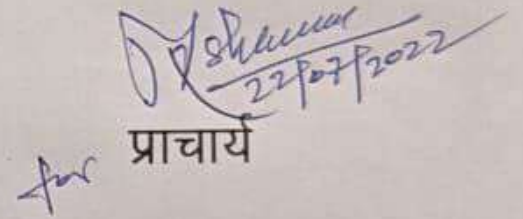 22/07/2022
for प्राचार्य